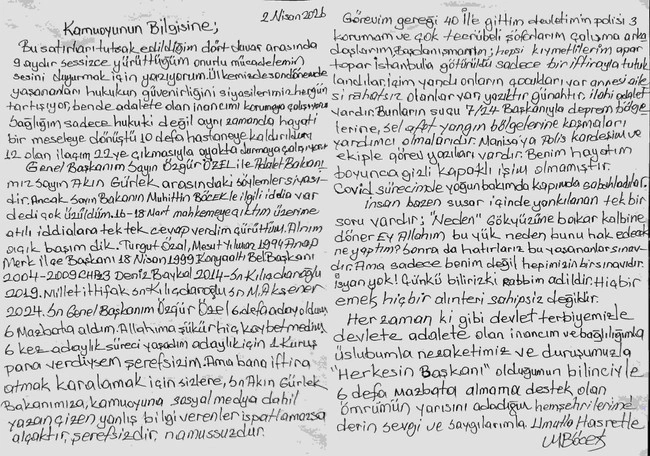 2 Nisan 2026
Kamuoyunun Bilgisine;
Bu satırları tutsak edildiğim dört duvar arasında
9 aydır sessizce yürüttüğüm onurlu mücadelemin
sesini duyurmak için yazıyorum. Ülkemizde son dönemde
yaşananları hukukun güvenirliğini siyasilerimiz hergün
tartışıyor, bende adalete olan inancımı korumaya çalışıyorum
bağlığım sadece hukuki değil aynı zamanda hayati
bir meseleye dönüştü 10 defa hastaneye kaldırıldım
12 olan ilaçım 22 ye çıkmasıyla ayakta durmaya çalışıyorum
Genel Başkanım Sayın Özgür ÖZEL ile Adalet Bakanı
mız Sayın Akın Gürlek arasındaki söylemler siyasi-
dir. Ancak Sayın Bakanın Muhittin BÖCEK le ilgili iddia var
dedi çok üzüldüm. 16-18 Mart mahkemeye çıktım üzerine
atılı iddialara tek tek cevap verdim çürüttüm. Alnım
açık başım dik. Turgut Özal, Mesut Yılmaz 1994 Anap
Merk. ilçe Başkanı 18 Nisan 1999 Konyaaltı Bel Başkanı
2004-2009 CHP 3 Deniz Baykal 2014 - Sn Kılıçdaroğlu
2019. Millet ittifak Sn Kılıçdaroğlu Sn M. Akşener
2024. Sn Genel Başkanım Özgür Özel 6 defa aday oldum
6 Mazbata aldım. Allahıma şükür hiç kaybetmedim
6 kez adaylık süreci yaşadım adaylık için 1 Kuruş
para verdiysem şerefsizim. Ama bana iftira
atmak karalamak için sizlere, Sn Akın Gürlek
Bakanımıza, kamuoyuna sosyal medya dahil
yazan çizen yanlış bilgi verenler ispatlamazsa
alçaktır, şerefsizdir, namussuzdur.
Görevim gereği 40 ile gittim devletimin polisi 3
korumam ve çok tecrübeli şoförlerim çalışma arka
daşlarım, Başdanışmanım; hepsi kıymetlilerim apar
topar İstanbula götürüldü sadece bir iftirayla tutuk
landılar içim yandı onların çocukları var annesi aile
si rahatsız olanlar var yazıktır günahtır. ilahi adalet
vardır. Bunların suçu 7/24 Başkanıyla deprem bölge
lerine, sel afet yangın bölgelerine koşmaları
yardımcı olmalarıdır. Manisa'ya Polis kardeşim ve
ekiple görev yazıları vardır. Benim hayatım
boyunca gizli kapaklı işim olmamıştır.
Covid sürecimde yoğun bakımda kapımda sabahladılar.
insan bazen susar içinde yankılanan tek bir
soru vardır; "Neden" Gökyüzüne bakar kalbine
döner Ey Allahım bu yük neden bunu hak edecek
ne yaptım? Sonra da hatırlarız bu yaşananlar sınav-
dır. Ama sadece benim değil hepimizin bir sınavıdır.
İsyan yok! Çünkü biliriz ki rabbim adildir. Hiç bir
emek hiçbir alınteri sahipsiz değildir.
Her zaman ki gibi devlet terbiyemizle
devlete adalete olan inancım ve bağlılığımla
üslubumla nezaketimiz ve duruşumuzla
"Herkesin Başkanı" olduğunun bilinciyle
6 defa Mazbata almama destek olan
ömrünün yarısını adadığım hemşehrilerime
derin sevgi ve saygılarımla. Umutla Hasretle
MBöcek